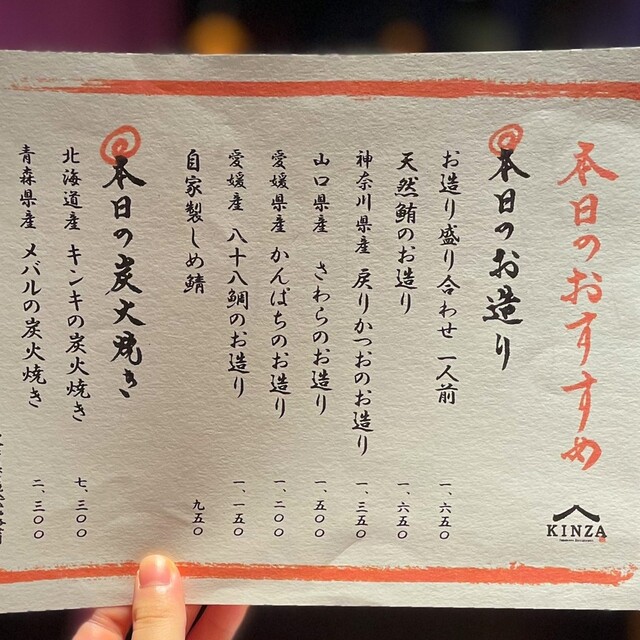 本日のおすすめ
KINZA
本日のお造り
お造り盛り合わせ 一人前 一、六五〇
天然鮪のお造り 一、六五〇
神奈川県産 戻りかつおのお造り 一、三五〇
山口県産 さわらのお造り 一、五〇〇
愛媛県産 かんぱちのお造り 一、二〇〇
愛媛産 八十八鯛のお造り 一、一五〇
自家製しめ鯖 九五〇
本日の炭火焼き
北海道産 キンキの炭火焼き 七、三〇〇
青森県産 メバルの炭火焼き 二、三〇〇